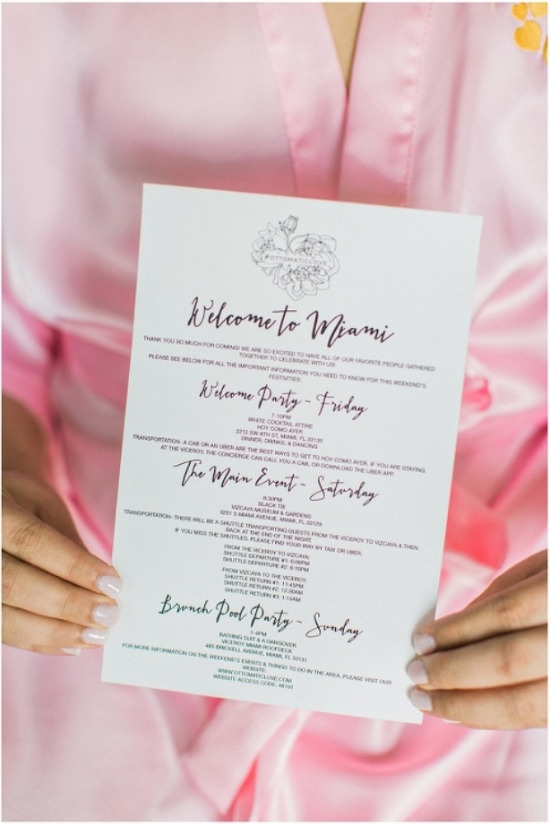 #OTTOMATICLOVE
Welcome to Miami
THANK YOU SO MUCH FOR COMING! WE ARE SO EXCITED TO HAVE ALL OF OUR FAVORITE PEOPLE GATHERED
TOGETHER TO CELEBRATE WITH US!
PLEASE SEE BELOW FOR ALL THE IMPORTANT INFORMATION YOU NEED TO KNOW FOR THIS WEEKEND'S
FESTIVITIES:
Welcome Party - Friday
7-10PM
WHITE COCKTAIL ATTIRE
HOY COMO AYER
2212 SW 8TH ST, MIAMI, FL 33135
DINNER, DRINKS, & DANCING
TRANSPORTATION- A CAB OR AN UBER ARE THE BEST WAYS TO GET TO HOY COMO AYER, IF YOU ARE STAYING
AT THE VICEROY, THE CONCIERGE CAN CALL YOU A CAB, OR DOWNLOAD THE UBER APP.
The Main Event - Saturday
6:30PM
BLACK TIE
VIZCAYA MUSEUM & GARDENS
3251 S MIAMI AVENUE, MIAMI, FL 33129
TRANSPORTATION- THERE WILL BE A SHUTTLE TRANSPORTING GUESTS FROM THE VICEROY TO VIZCAYA & THEN
BACK AT THE END OF THE NIGHT.
IF YOU MISS THE SHUTTLES, PLEASE FIND YOUR WAY BY TAXI OR UBER.
FROM THE VICEROY TO VIZCAYA:
SHUTTLE DEPARTURE #1: 6:00PM
SHUTTLE DEPARTURE #2: 6:15PM
FROM VIZCAYA TO THE VICEROY
SHUTTLE RETURN #1: 11:45PM
SHUTTLE RETURN #2: 12:30AM
SHUTTLE RETURN #3: 1:15AM
Brunch Pool Party - Sunday
1-4PM
BATHING SUIT & A HANGOVER
VICEROY MIAMI ROOFDECK
485 BRICKELL AVENUE, MIAMI, FL 33131
FOR MORE INFORMATION ON THE WEEKEND'S EVENTS & THINGS TO DO IN THE AREA, PLEASE VISIT OUR
WEBSITE:
WWW.OTTOMATICLOVE.COM
WEBSITE ACCESS CODE: